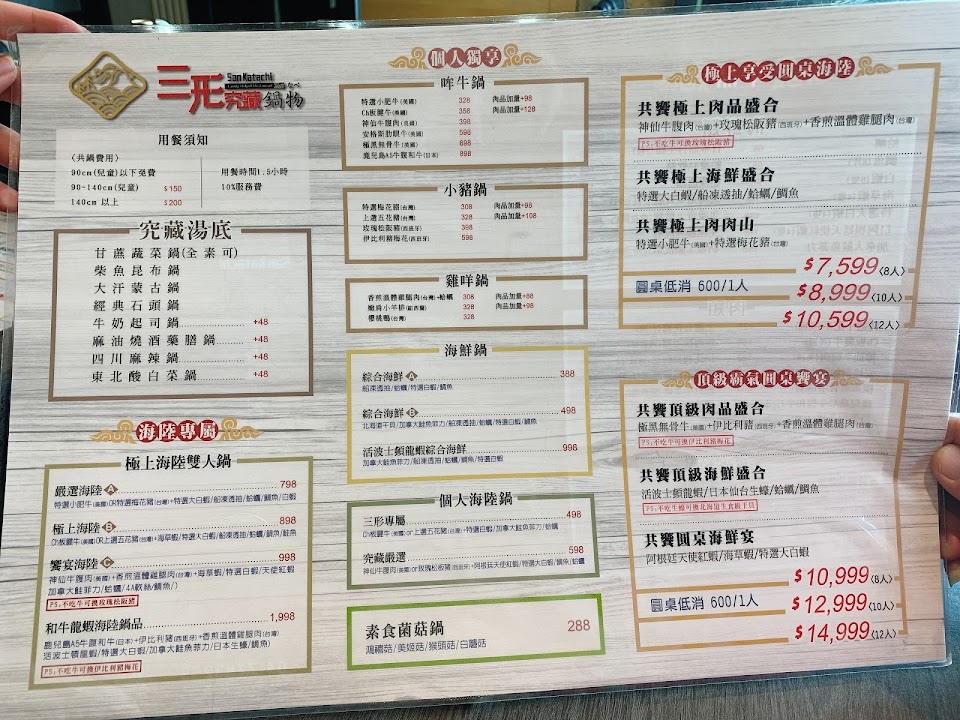 三形
SanKatachi
究藏鍋物
なべ
用餐須知
(共鍋費用)
90cm(兒童)以下免費
90~140cm(兒童) $150
140cm 以上 $200
用餐時間1.5小時
10%服務費
究藏湯底
甘蔗蔬菜鍋(全素可)
柴魚昆布鍋
大汗蒙古鍋
經典石頭鍋
牛奶起司鍋 +48
麻油燒酒藥膳鍋 +48
四川麻辣鍋 +48
東北酸白菜鍋 +48
海陸專屬
極上海陸雙人鍋
嚴選海陸 A 798
特選小肥牛(美國)OR特選梅花豬(台灣)+特選大白蝦/船凍透抽/蛤蠣/鯛魚/白蝦
極上海陸 B 898
Ch板腱牛(美國)OR上選五花豬(台灣)+海草蝦/特選白蝦/船凍透抽/蛤蠣/鯛魚/鮭魚
饗宴海陸 C 998
神仙牛腹肉(美國)+香煎溫體雞腿肉(台灣)+海草蝦/特選白蝦/天使紅蝦
加拿大鮭菲力/蛤蠣/4A軟絲/鯛魚/)
PS:不吃牛可換玫瑰松阪豬
和牛龍蝦海陸鍋品 1,998
鹿兒島A5牛腹和牛(日本)+伊比利豬(西班牙)+香煎溫體雞腿肉(台灣)
活波士頓龍蝦/特選大白蝦/加拿大鮭魚菲力/日本生蠔/鯛魚)
PS:不吃牛可換伊比利豬梅花
個人獨享
哞牛鍋
特選小肥牛(美國) 328 肉品加量+98
Ch板腱牛(美國) 358 肉品加量+128
神仙牛腹肉(美國) 398
安格斯肋眼牛(美國) 598
極黑無骨牛(美國) 698
鹿兒島A5牛腹和牛(日本) 898
小豬鍋
特選梅花豬(台灣) 308 肉品加量+98
上選五花豬(台灣) 328 肉品加量+108
玫瑰松阪豬(西班牙) 398
伊比利豬梅花(西班牙) 398
雞咩鍋
香煎溫體雞腿肉(台灣)+蛤蠣 308 肉品加量+88
嫩肩小羊排(紐西蘭) 328 肉品加量+98
櫻桃鴨(台灣) 328
海鮮鍋
綜合海鮮 A 388
船凍透抽/蛤蠣/特選白蝦/鯛魚
綜合海鮮 B 498
北海道干貝/加拿大鮭魚菲力/船凍透抽/蛤蠣/特選白蝦/鯛魚
活波士頓龍蝦綜合海鮮 998
加拿大鮭魚菲力/船凍透抽/蛤蠣/鯛魚/特選白蝦
個人海陸鍋
三形專屬 498
Ch板腱牛(美國)or上選五花豬(台灣)+特選白蝦/加拿大鮭魚菲力/蛤蠣
究藏嚴選 598
神仙牛腹肉(美國)or玫瑰松板豬(西班牙)+阿根廷天使紅蝦/特選大白蝦/鯛魚/蛤蠣
素食菌菇鍋 288
鴻禧菇/美姬菇/猴頭菇/白蘑菇
極上享受圓桌海陸
共饗極上肉品盛合
神仙牛腹肉(台灣)+玫瑰松阪豬(西班牙)+香煎溫體雞腿肉(台灣)
PS:不吃牛可換玫瑰松阪豬
共饗極上海鮮盛合
特選大白蝦/船凍透抽/蛤蠣/鯛魚
共饗極上肉肉山
特選小肥牛(美國)+特選梅花豬(台灣)
圓桌低消 600/1人
$7,599(8人)
$8,999(10人)
$10,599(12人)
頂級霸氣圓桌饗宴
共饗頂級肉品盛合
極黑無骨牛(美國)+伊比利豬(西班牙)+香煎溫體雞腿肉(台灣)
PS:不吃牛可換伊比利豬梅花
共饗頂級海鮮盛合
活波士頓龍蝦/日本仙台生蠔/蛤蠣/鯛魚
PS:不吃生蠔可換北海道生食級干貝
共饗圓桌海鮮宴
阿根廷天使紅蝦/海草蝦/特選大白蝦
圓桌低消 600/1人
$10,999(8人)
$12,999(10人)
$14,999(12人)